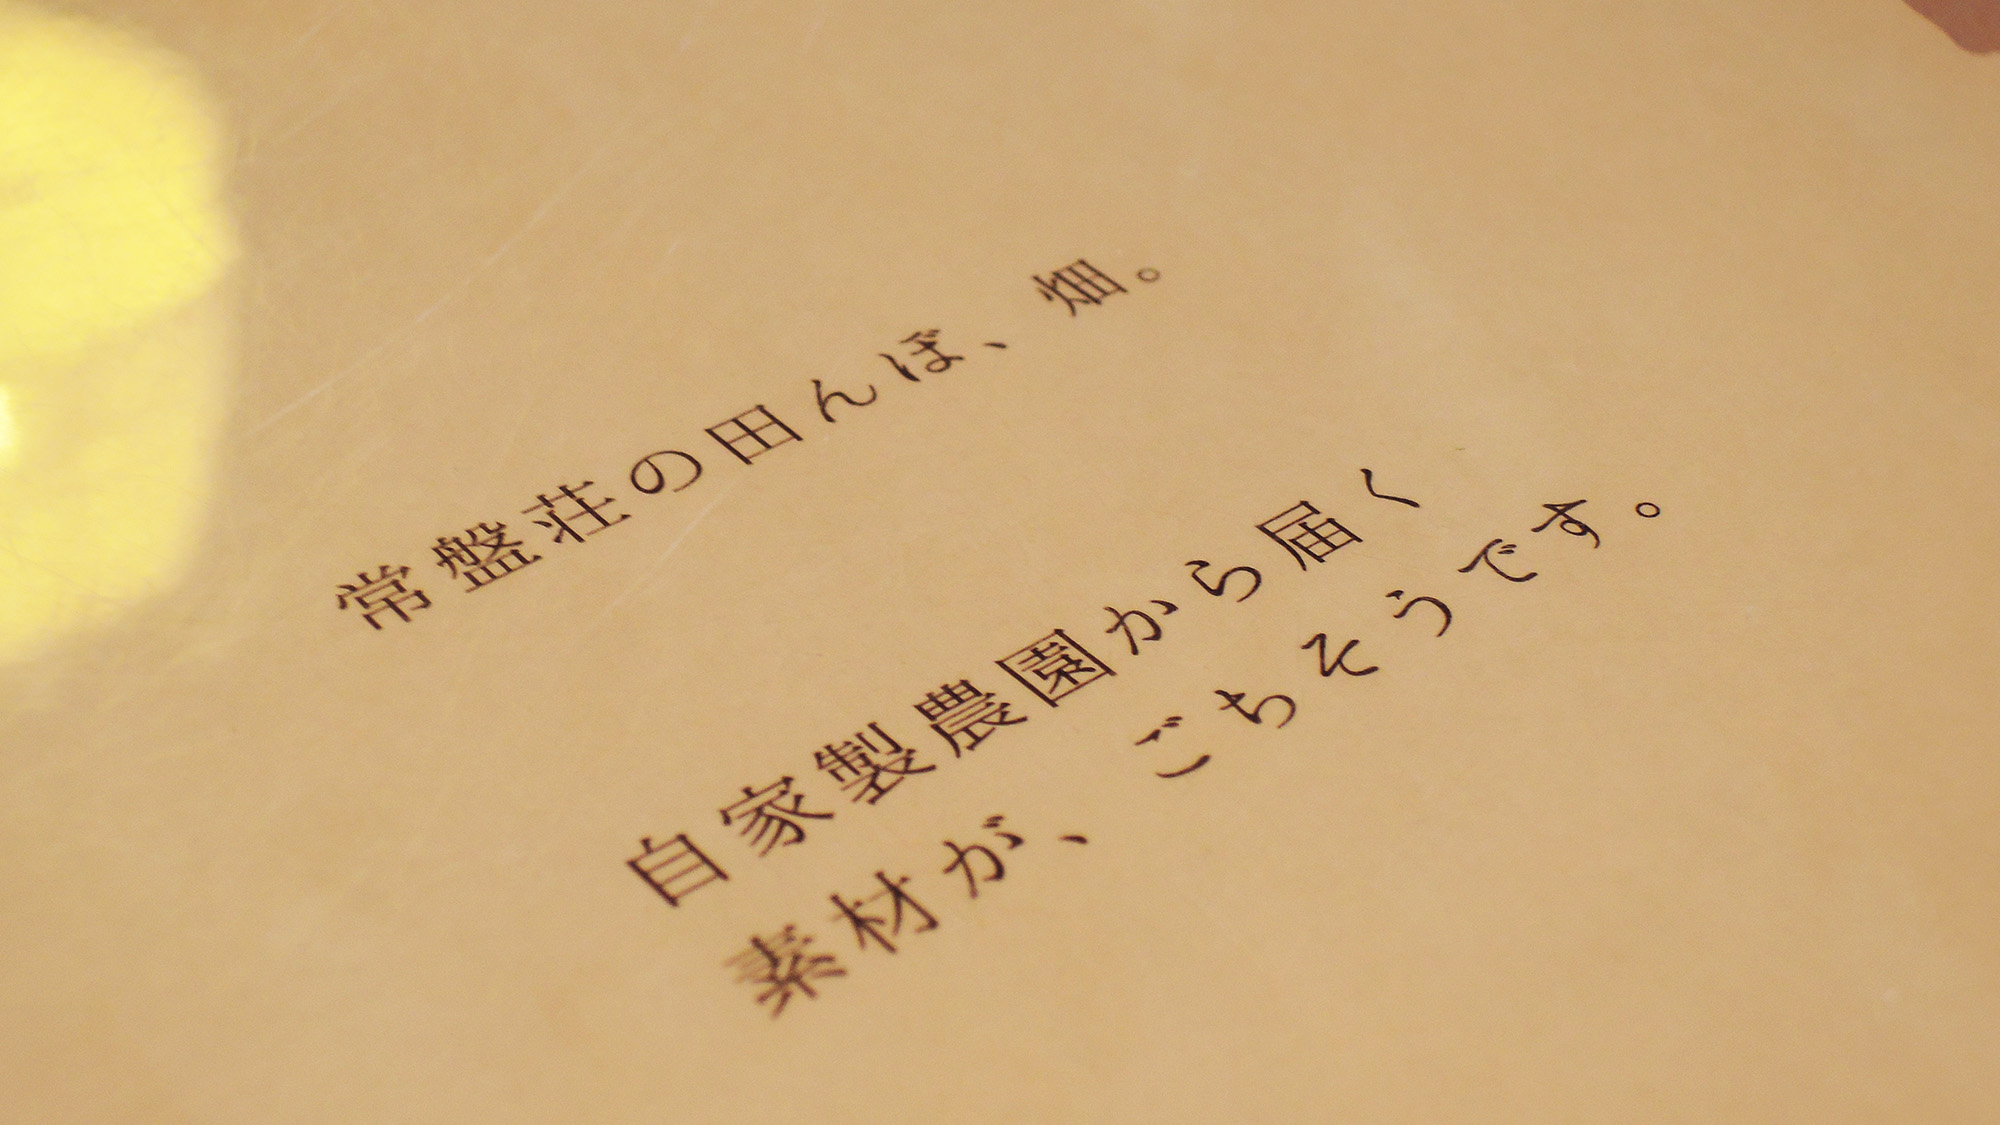 常盤荘の田んぼ、畑。
自家製農園から届く
素材が、ごちそうです。